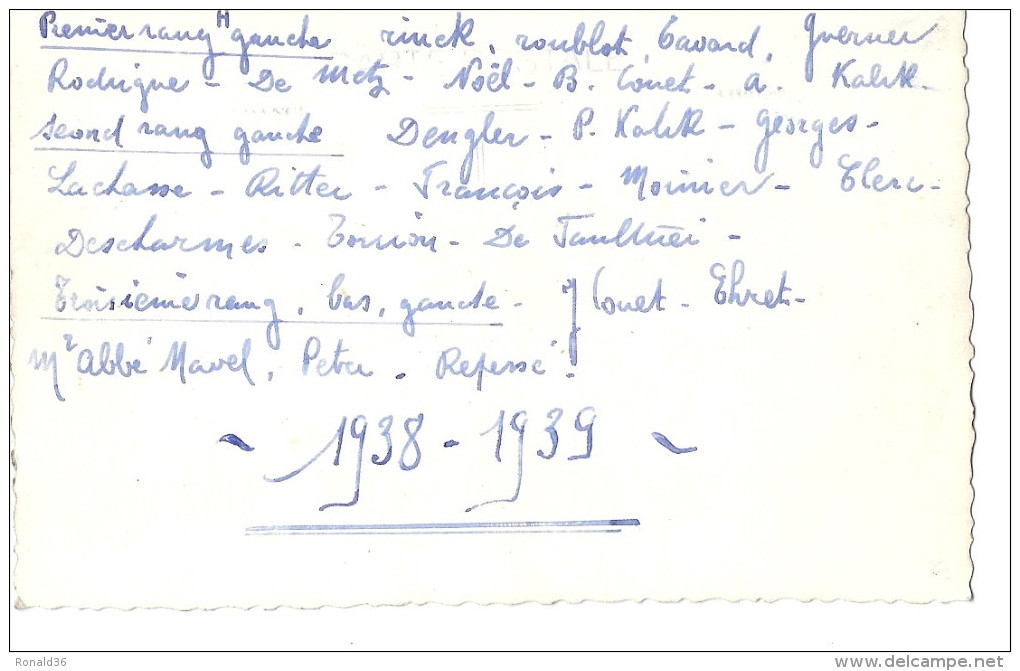 Premier rang H gauche rinck, roublot, Tavard, Gverner
Rodrigue - De Metz - Noël - B. Couet - a. Kalck -
second rang gauche Dengler - P. Kalck - georges -
Lachasse - Ritter - François - Moinier - Clerc -
Descharmes - Toirion - De
Troisième rang, bas, gauche - J Couet - Ehret -
Mr abbé Mavel, Peter. Repessé.
~ 1938 - 1939 ~
Ronald36
www.delcampe.net